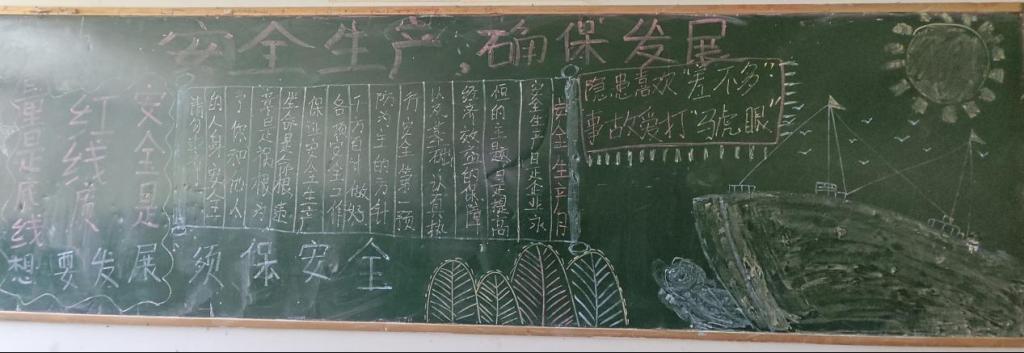 安全生产,确保发展
安全是
红线质
量是底线
想要发展 须保安全
安全生产月
安全生产 是企业永
恒的主题 是提高
经济效益的保障
认真执
行"安全第一预
防为主的方针
千方百计做好
各项安全工作
安全生产
了你和他人
的人身安全
请勿违章
隐患喜欢"差不多"
事故爱打"马虎眼"